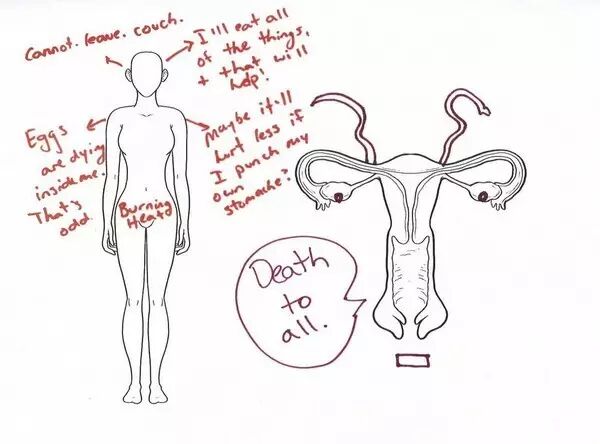 Cannot. leave. couch.
I'll eat all
of the things,
+ that will
help!
Eggs
are dying
inside me.
That's
odd
Maybe it'll
hurt less if
I punch my
own
stomache?
Burning
Heatd
Death
to
all.